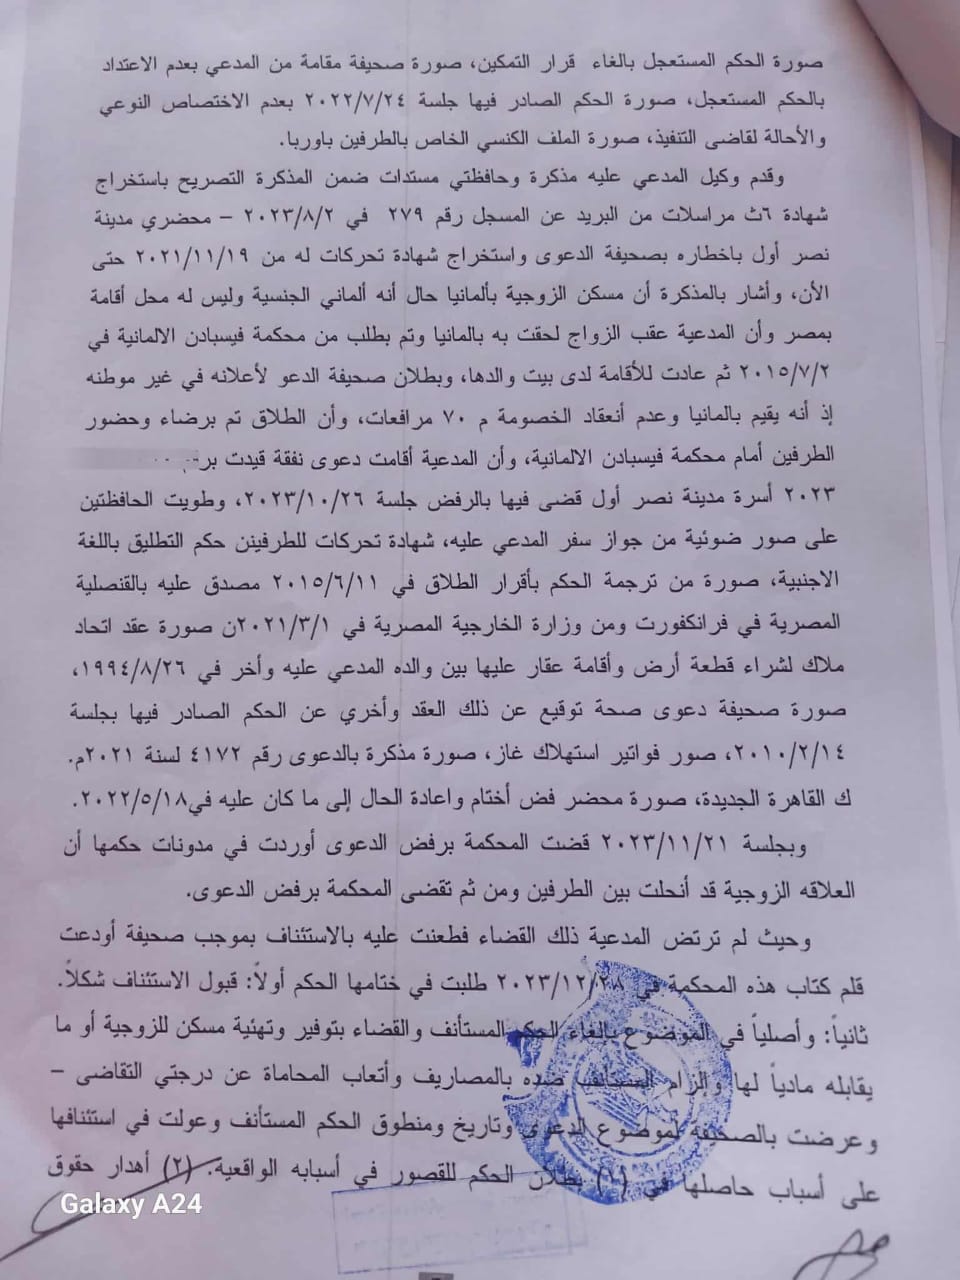 صورة الحكم المستعجل بالغاء قرار التمكين، صورة صحيفة مقامة من المدعي بعدم الاعتداد
بالحكم المستعجل، صورة الحكم الصادر فيها جلسة ٢٠٢٢/٧/٢٤ بعدم الاختصاص النوعي
والأحالة لقاضى التنفيذ، صورة الملف الكنسي الخاص بالطرفين باوربا.
وقدم وكيل المدعي عليه مذكرة وحافظتي مستدات ضمن المذكرة التصريح باستخراج
شهادة ٦ث مراسلات من البريد عن المسجل رقم ٢٧٩ في ٢٠٢٣/٨/٢ – محضري مدينة
نصر أول باخطاره بصحيفة الدعوى واستخراج شهادة تحركات له من ٢٠٢١/١١/١٩ حتى
الأن، وأشار بالمذكرة أن مسكن الزوجية بألمانيا حال أنه ألماني الجنسية وليس له محل أقامة
بمصر وأن المدعية عقب الزواج لحقت به بالمانيا وتم بطلب من محكمة فيسبادن الالمانية في
٢٠١٥/٧/٢ ثم عادت للأقامة لدى بيت والدها، وبطلان صحيفة الدعو لأعلانه في غير موطنه
إذ أنه يقيم بالمانيا وعدم أنعقاد الخصومة م ٧٠ مرافعات، وأن الطلاق تم برضاء وحضور
الطرفين أمام محكمة فيسبادن الالمانية، وأن المدعية أقامت دعوى نفقة قيدت
٢٠٢٣ أسرة مدينة نصر أول قضى فيها بالرفض جلسة ٢٠٢٣/١٠/٢٦، وطويت الحافظتين
على صور ضوئية من جواز سفر المدعي عليه، شهادة تحركات للطرفينن حكم التطليق باللغة
الاجنبية، صورة من ترجمة الحكم بأقرار الطلاق في ٢٠١٥/٦/١١ مصدق عليه بالقنصلية
المصرية في فرانكفورت ومن وزارة الخارجية المصرية في ٢٠٢١/٣/١ن صورة عقد اتحاد
ملاك لشراء قطعة أرض وأقامة عقار عليها بين والده المدعي عليه وأخر في ١٩٩٤/٨/٢٦،
صورة صحيفة دعوى صحة توقيع عن ذلك العقد وأخري عن الحكم الصادر فيها بجلسة
٢٠١٠/٢/١٤، صور فواتير استهلاك غاز، صورة مذكرة بالدعوى رقم ٤١٧٢ لسنة ٢٠٢١م.
ك القاهرة الجديدة، صورة محضر فض أختام واعادة الحال إلى ما كان عليه في٢٠٢٢/٥/١٨.
وبجلسة ٢٠٢٣/١١/٢١ قضت المحكمة برفض الدعوى أوردت في مدونات حكمها أن
العلاقه الزوجية قد أنحلت بين الطرفين ومن ثم تقضى المحكمة برفض الدعوى.
وحيث لم ترتض المدعية ذلك القضاء فطعنت عليه بالاستئناف بموجب صحيفة أودعت
قلم كتاب هذه المحكمة في ٢٠٢٣/١٢/٢٨ طلبت في ختامها الحكم أولاً: قبول الاستئناف شكلاً.
ثانياً: وأصلياً في الموضوع بالغاء الحكم المستأنف والقضاء بتوفير وتهئية مسكن للزوجية أو ما
يقابله مادياً لها وإلزام المستأنف ضده بالمصاريف وأتعاب المحاماة عن درجتي التقاضى –
وعرضت بالصحيفة لموضوع الدعوى وتاريخ ومنطوق الحكم المستأنف وعولت في استئنافها
على أسباب حاصلها في (١) بطلان الحكم للقصور في أسبابه الواقعية. (٢) أهدار حقوق
Galaxy A24